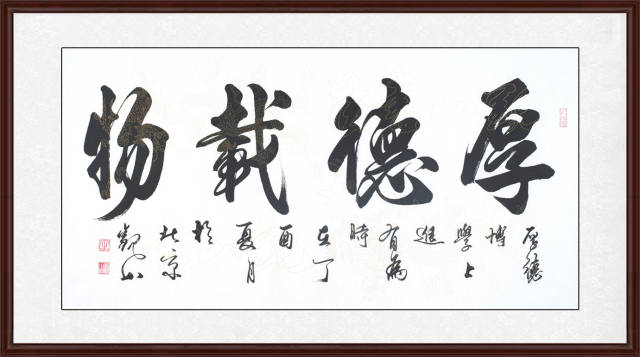 厚德載物
厚德
博
學上
進
有為
時
在丁
酉
夏月
於
北京
觀